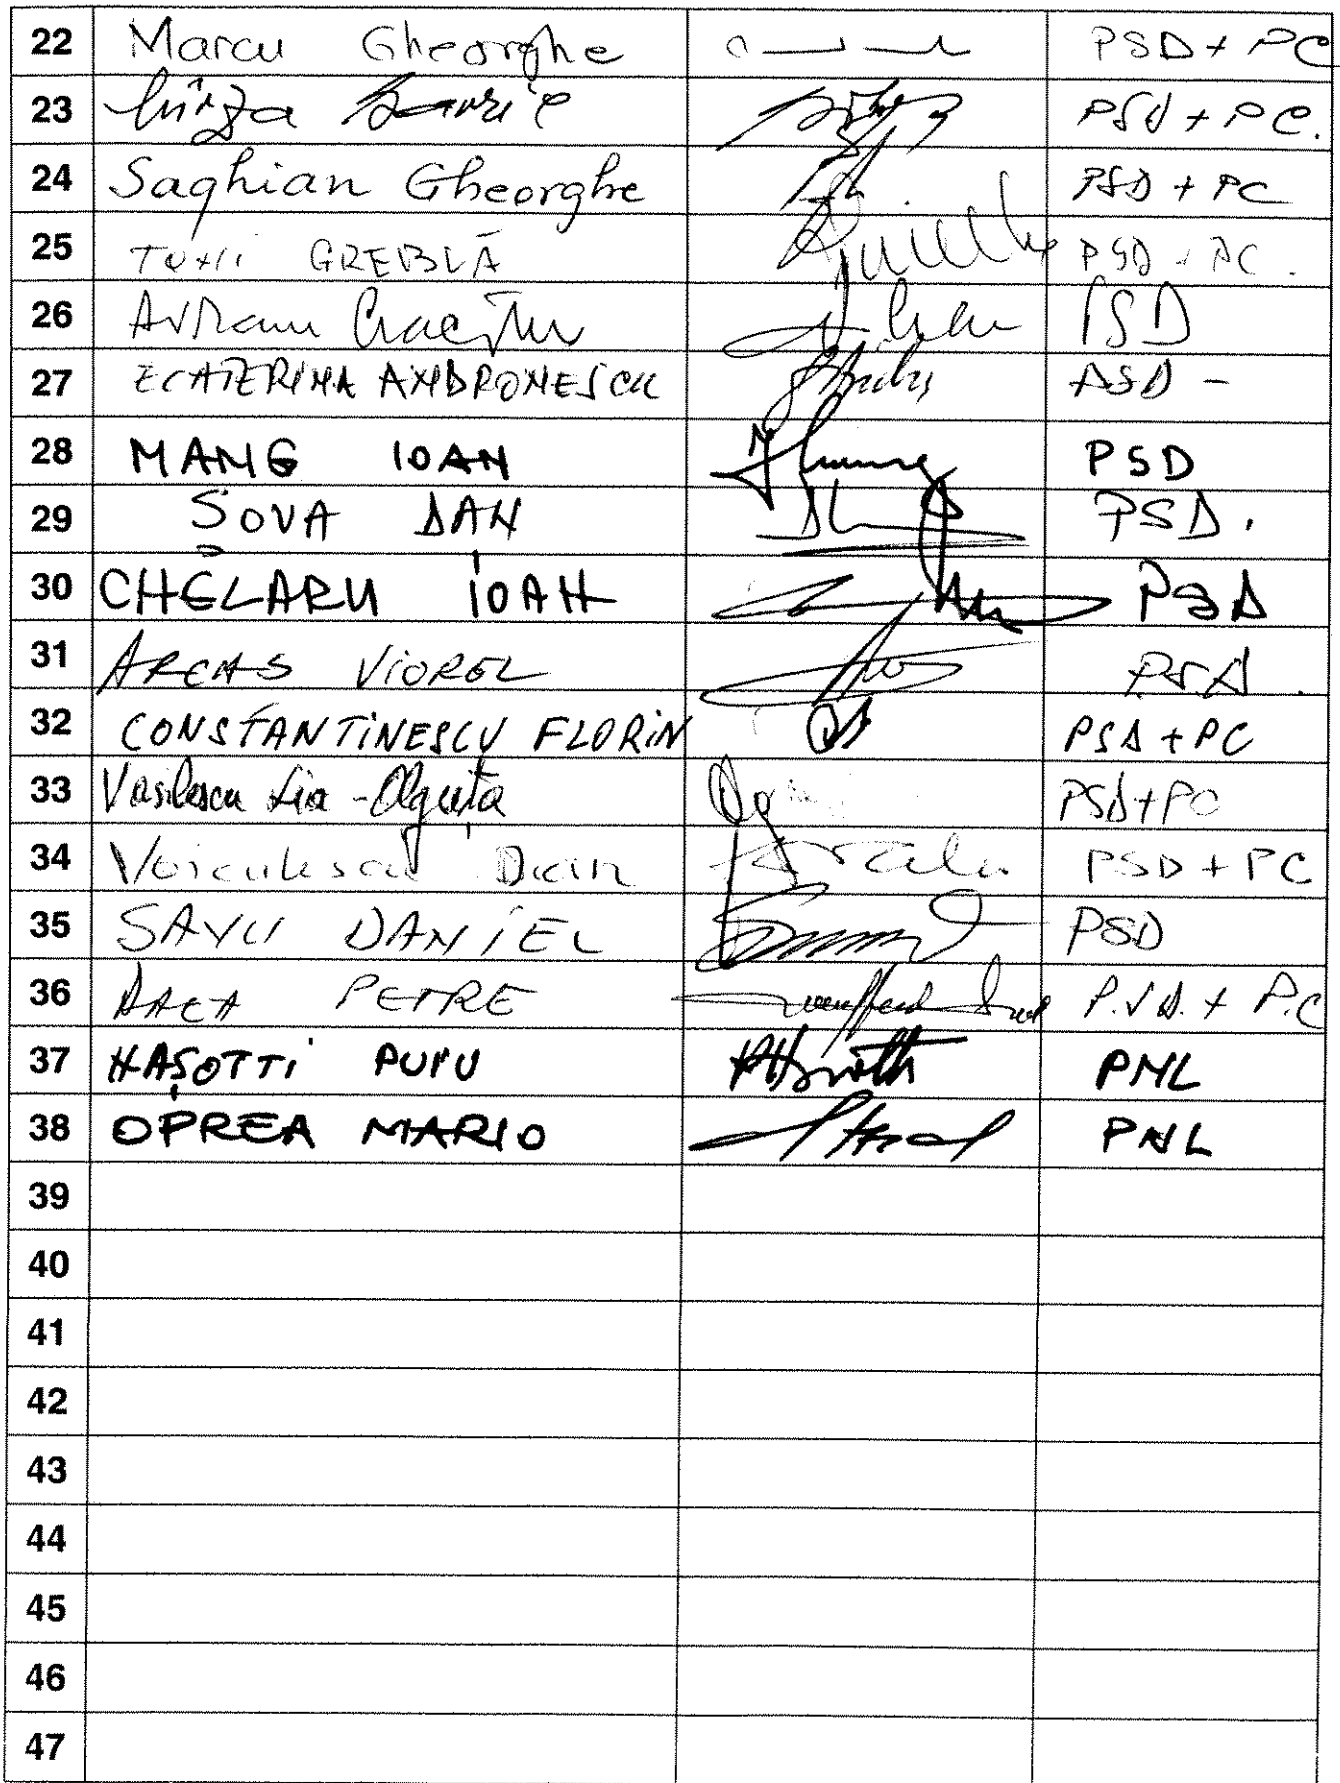 22 Marcu Gheorghe PSD + PC
23 Bîrza PSD + PC.
24 Saghian Gheorghe PSD + PC
25 TONI GREBLĂ PSD + PC.
26 Avram Crăciun PSD
27 ECATERINA ANDRONESCU PSD -
28 MANG IOAN PSD
29 ȘOVA DAN PSD.
30 CHELARU IOAN PSD
31 ARCAȘ VIOREL PSD.
32 CONSTANTINESCU FLORIN PSD + PC
33 Vasilescu Lia - Olguța PSD + PC
34 Voiculescu Dan PSD + PC
35 SAVU DANIEL PSD
36 DAEA PETRE P.S.D. + P.C
37 HAȘOTTI PUIU PNL
38 OPREA MARIO PNL
39
40
41
42
43
44
45
46
47